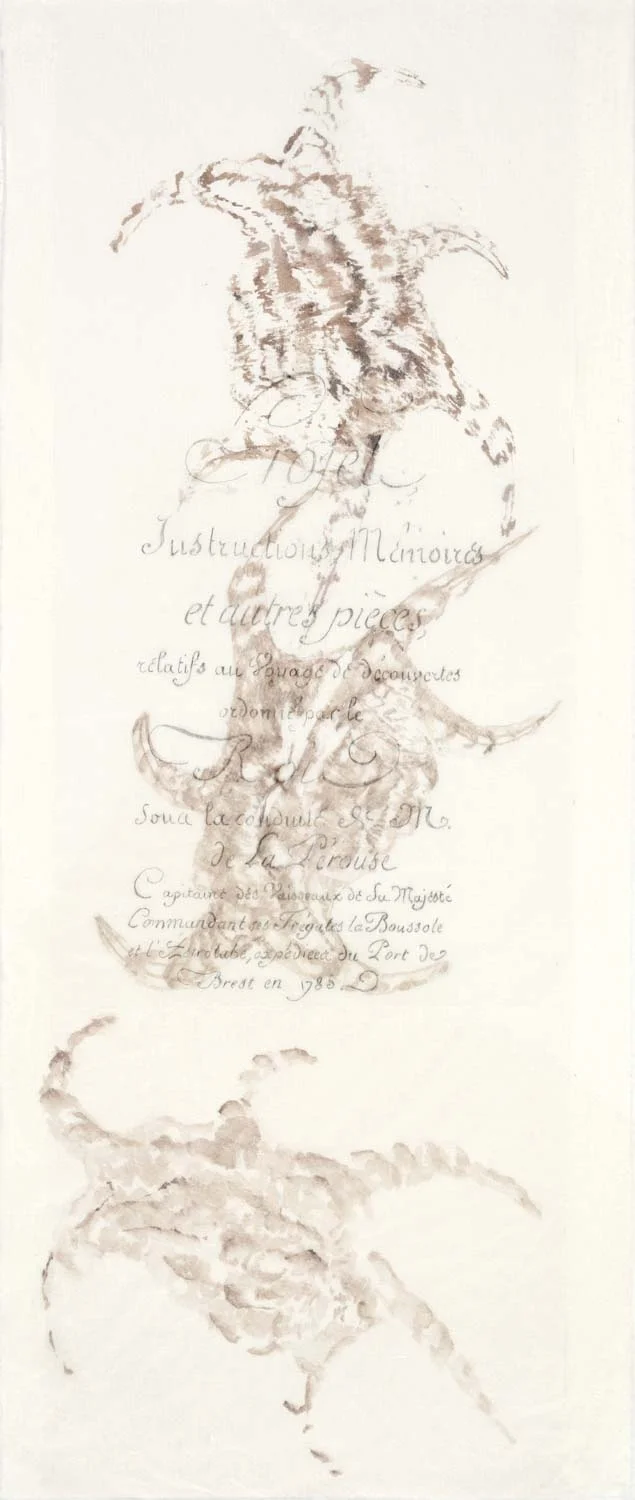 Projet
Instructions, Mémoires
et autres pièces
rélatifs au Voyage de découvertes
ordonné par le
Roi
Sous la conduite de M.
de La Pérouse
Capitaine des Vaisseaux de Sa Majesté
Commandant ses Frégates la Boussole
et l'Astrolabe, expédiées du Port de
Brest en 1785.